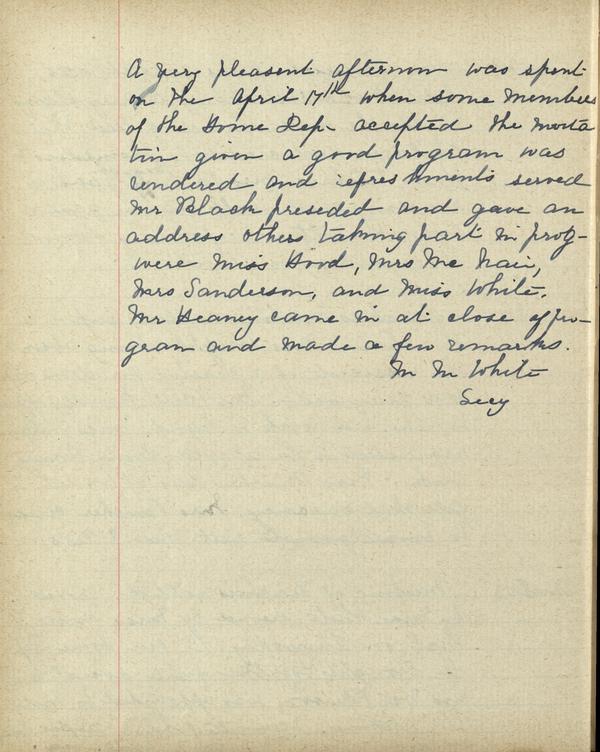 A very pleasent afternoon was spent
on the April 17th when some members
of the Home Dep- accepted the invita
tin given a good program was
rendered and refreshments served
Mr Black preseded and gave an
address others taking part in prog-
were Miss Hood, Mrs Mc Nair,
Mrs Sanderson, and Miss White.
Mr Heaney came in at close of pro-
gram and made a few remarks.
M M White
Secy